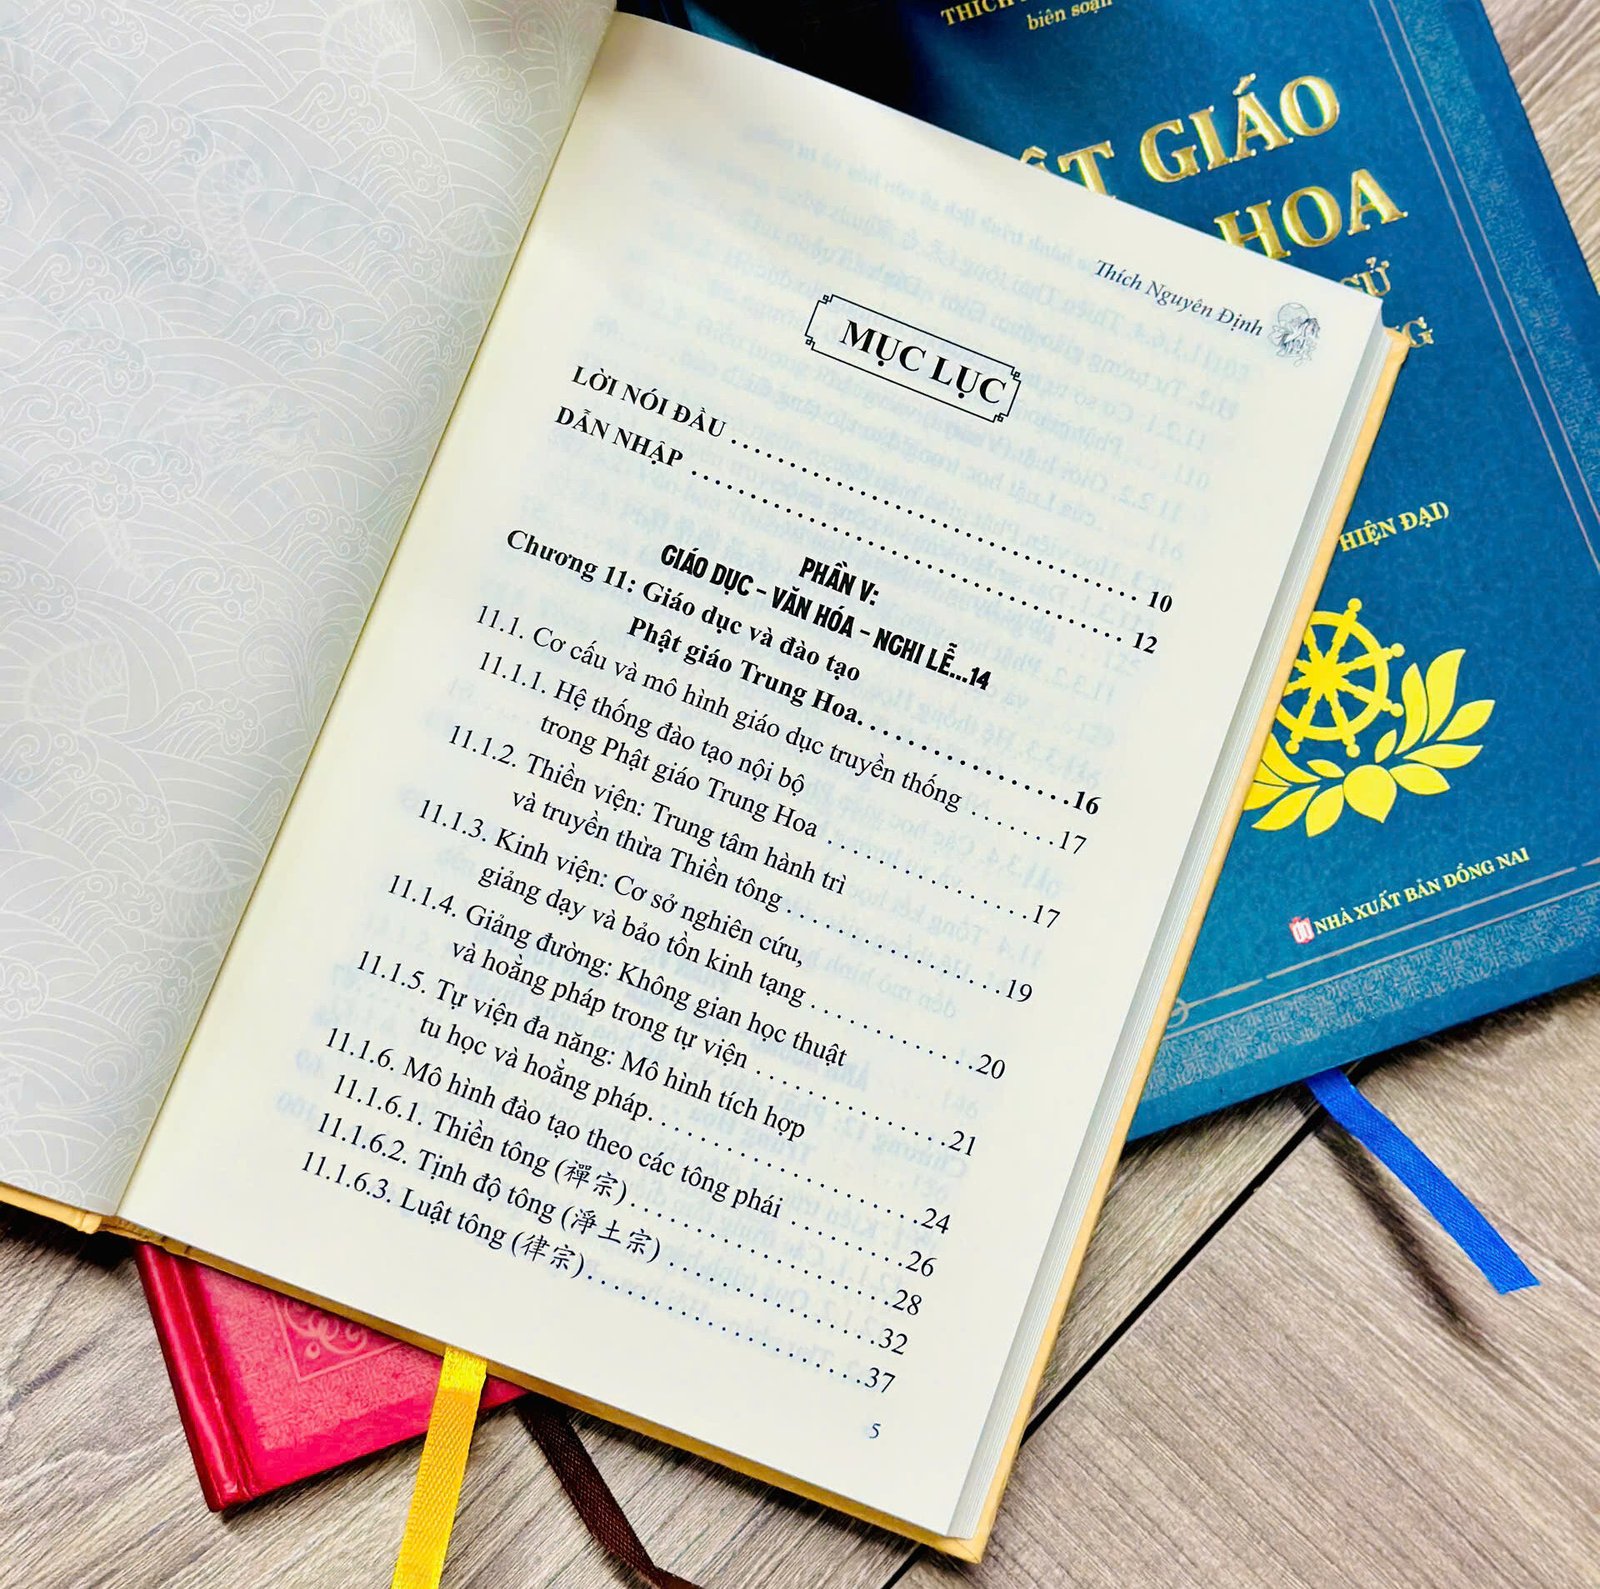 Thích Nguyên Định
MỤC LỤC
LỜI NÓI ĐẦU ........ 10
DẪN NHẬP ........ 12
PHẦN V:
GIÁO DỤC – VĂN HÓA – NGHI LỄ...14
Chương 11: Giáo dục và đào tạo
Phật giáo Trung Hoa. ........ 16
11.1. Cơ cấu và mô hình giáo dục truyền thống ....... 17
11.1.1. Hệ thống đào tạo nội bộ
trong Phật giáo Trung Hoa ........ 17
11.1.2. Thiền viện: Trung tâm hành trì
và truyền thừa Thiền tông ........ 19
11.1.3. Kinh viện: Cơ sở nghiên cứu,
giảng dạy và bảo tồn kinh tạng ........ 20
11.1.4. Giảng đường: Không gian học thuật
và hoằng pháp trong tự viện ........ 21
11.1.5. Tự viện đa năng: Mô hình tích hợp
tu học và hoằng pháp. ........ 24
11.1.6. Mô hình đào tạo theo các tông phái ........ 26
11.1.6.1. Thiền tông (禪宗) ........ 28
11.1.6.2. Tịnh độ tông (淨土宗) ........ 32
11.1.6.3. Luật tông (律宗) ........ 37
5
THÍCH
biên soạn
GIÁO
HOA
SỬ
HIỆN ĐẠI)
NHÀ XUẤT BẢN ĐỒNG NAI